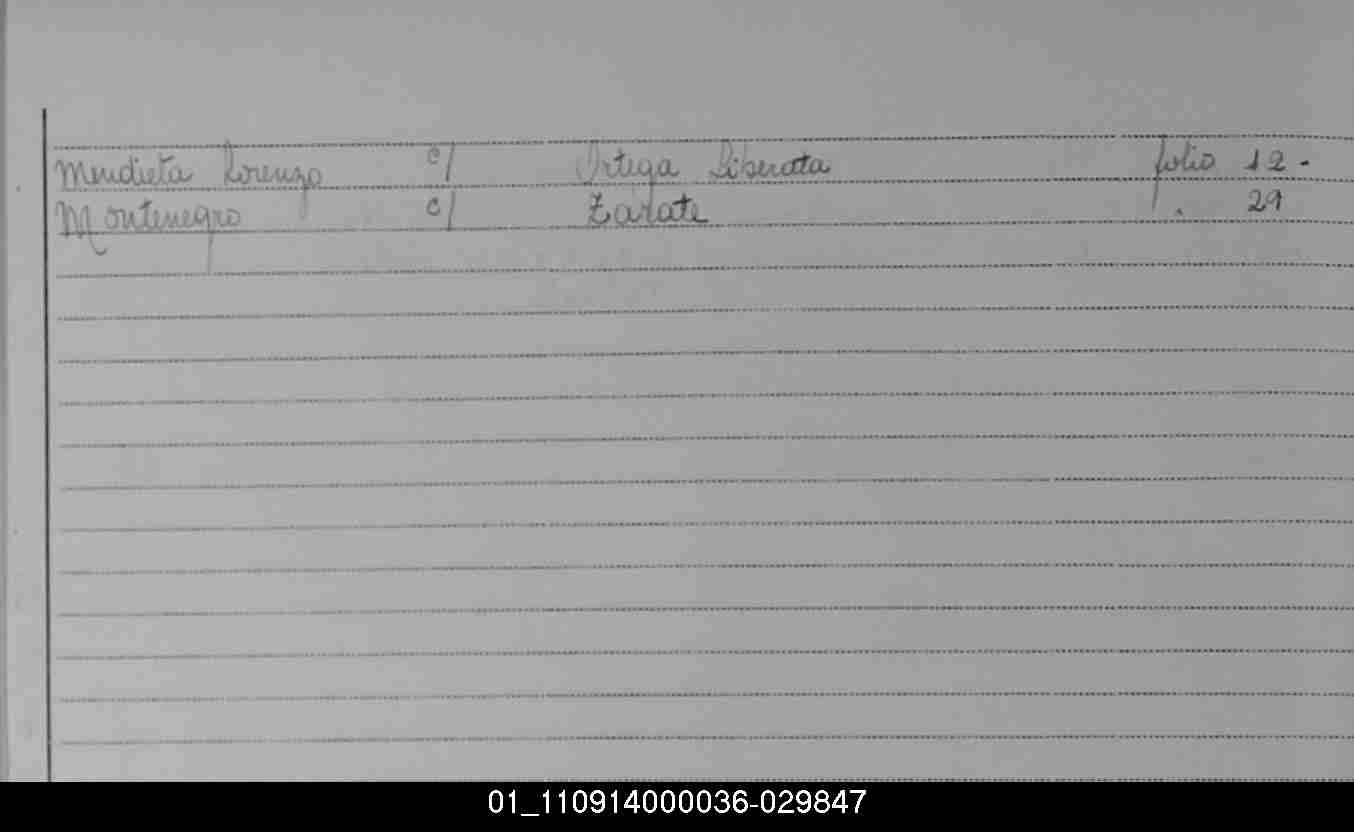 Mendieta Lorenzo c/ Ortega Liberata folio 12 -
Montenegro c/ Zarate . 29
01_110914000036-029847